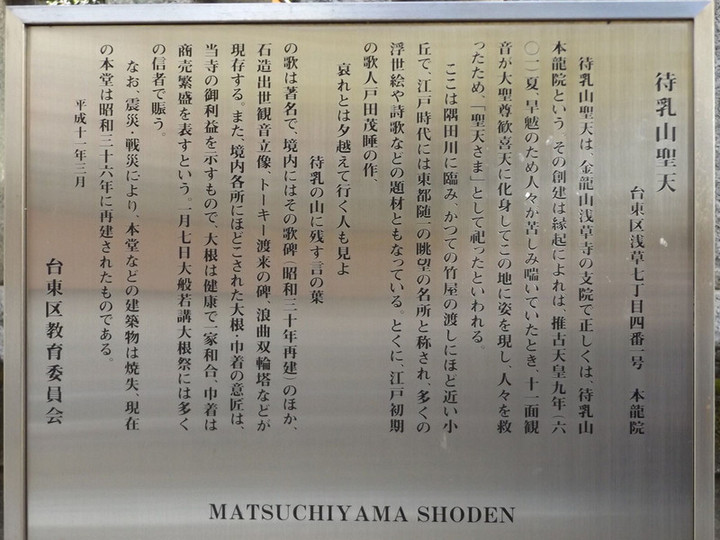 待乳山聖天
台東区浅草七丁目四番一号　本龍院
待乳山聖天は、金龍山浅草寺の支院で正しくは、待乳山
本龍院という。その創建は縁起によれば、推古天皇九年（六
〇一）夏、旱魃のため人々が苦しみ喘いていたとき、十一面観
音が大聖尊歓喜天に化身してこの地に姿を現し、人々を救
ったため、「聖天さま」として祀ったといわれる。
ここは隅田川に臨み、かつての竹屋の渡しにほど近い小
丘で、江戸時代には東都随一の眺望の名所と称され、多くの
浮世絵や詩歌などの題材ともなっている。とくに、江戸初期
の歌人戸田茂睡の作、
哀れとは夕越えて行く人も見よ
待乳の山に残す言の葉
の歌は著名で、境内にはその歌碑（昭和三十年再建）のほか、
石造出世観音立像、トーキー渡来の碑、浪曲双輪塔などが
現存する。また、境内各所にほどこされた大根・巾着の意匠は、
当寺の御利益を示すもので、大根は健康で一家和合、巾着は
商売繁盛を表すという。一月七日大般若講大根祭には多く
の信者で賑う。
なお、震災・戦災により、本堂などの建築物は焼失、現在
の本堂は昭和三十六年に再建されたものである。
平成十一年三月
台東区教育委員会
MATSUCHIYAMA SHODEN